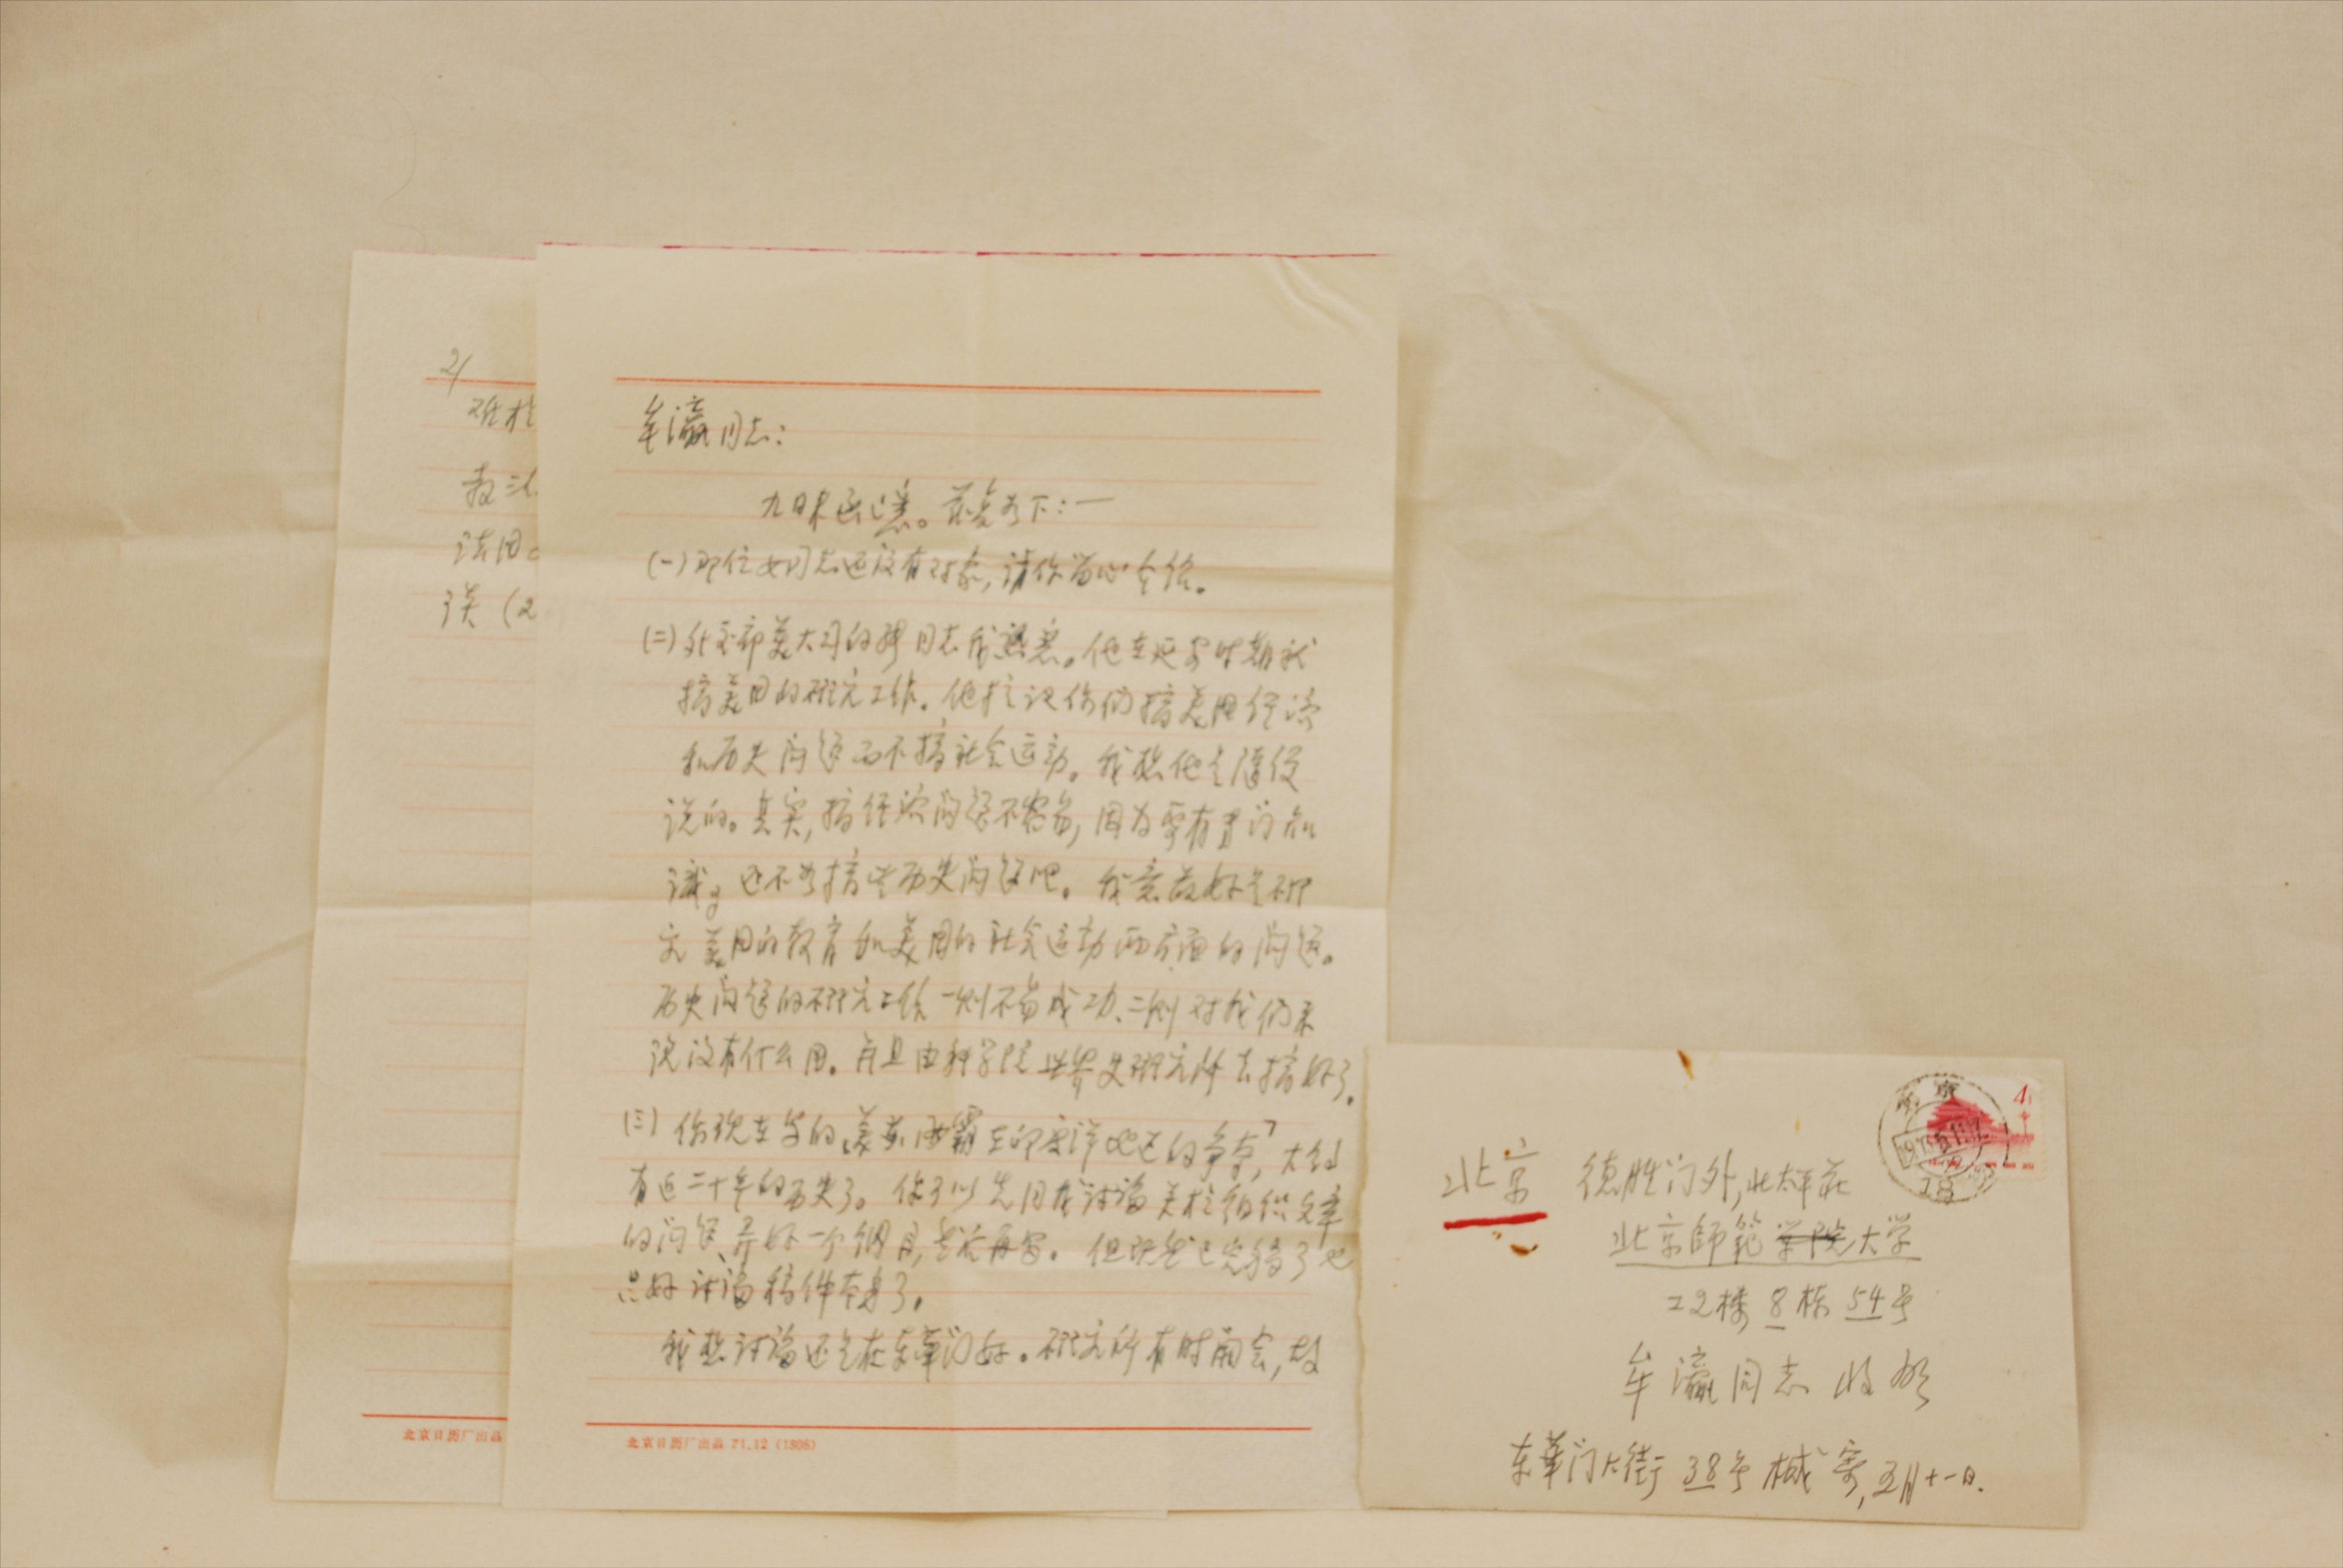 2/
教三
法国。
误(2
北京日历厂出品
牟瀛同志:
九日来函已悉。兹复如下:—
(一)那位女同志还没有对象,请你留心介绍。
(二)外交部美大司的 同志我熟悉。他在延安时期就
搞美国的研究工作。他建议你们搞美国经济
和历史问题而不搞社会运动。我想他是随便
说的。其实,搞经济问题不容易,因为要有专门知
识,还不如搞些历史问题吧。我意最好是研
究美国的教育和美国的社会运动两方面的问题。
历史问题的研究工作一则不易成功、二则对我们来
说没有什么用。并且由科学院世界史研究所去搞好了。
(三)你现在写的美苏两霸在印度洋地区的争夺,大约
有近二十年的历史了。你可以先同我讨论关于组织文章
的问题、弄好一个纲目,然后再写。但既然已完稿了也
只好讨论稿件本身了。
我想讨论还是在东华门好。研究所有时开会,故
北京日历厂出品 71.12 (1806)
北京
北京 德胜门外,北太平庄
北京師範学院大学
工2楼 8栋 54号
牟瀛同志 收启
东华门大街 38号 械寄,五月十一日.